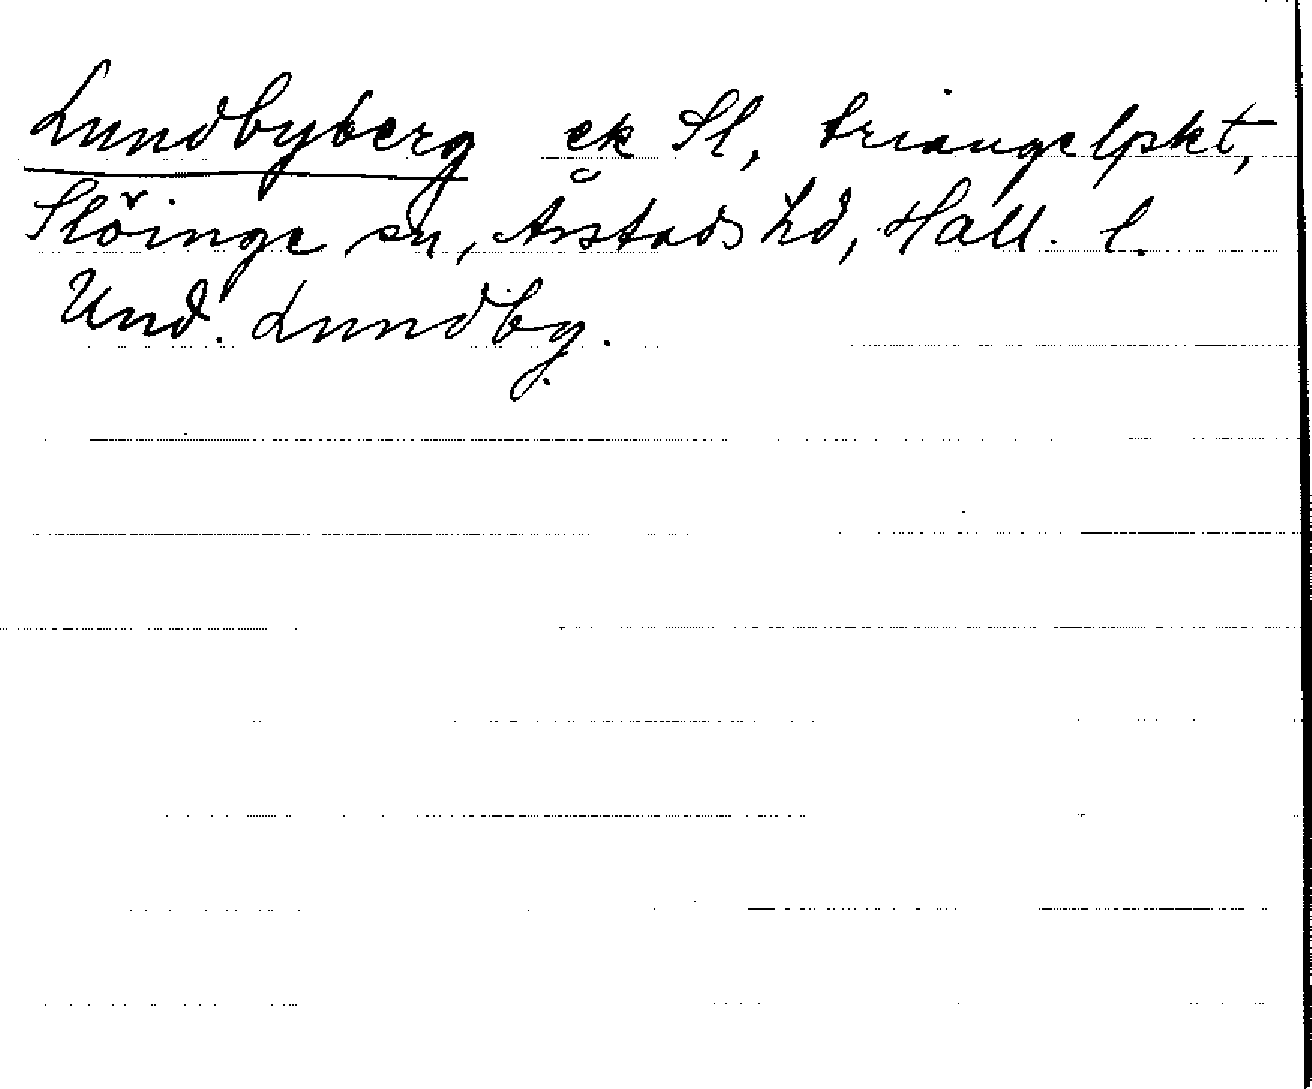 Lundbyberg ek Sl, triangelpkt,
Slöinge sn, Årstads hd, Hall. l.
Und. Lundby.